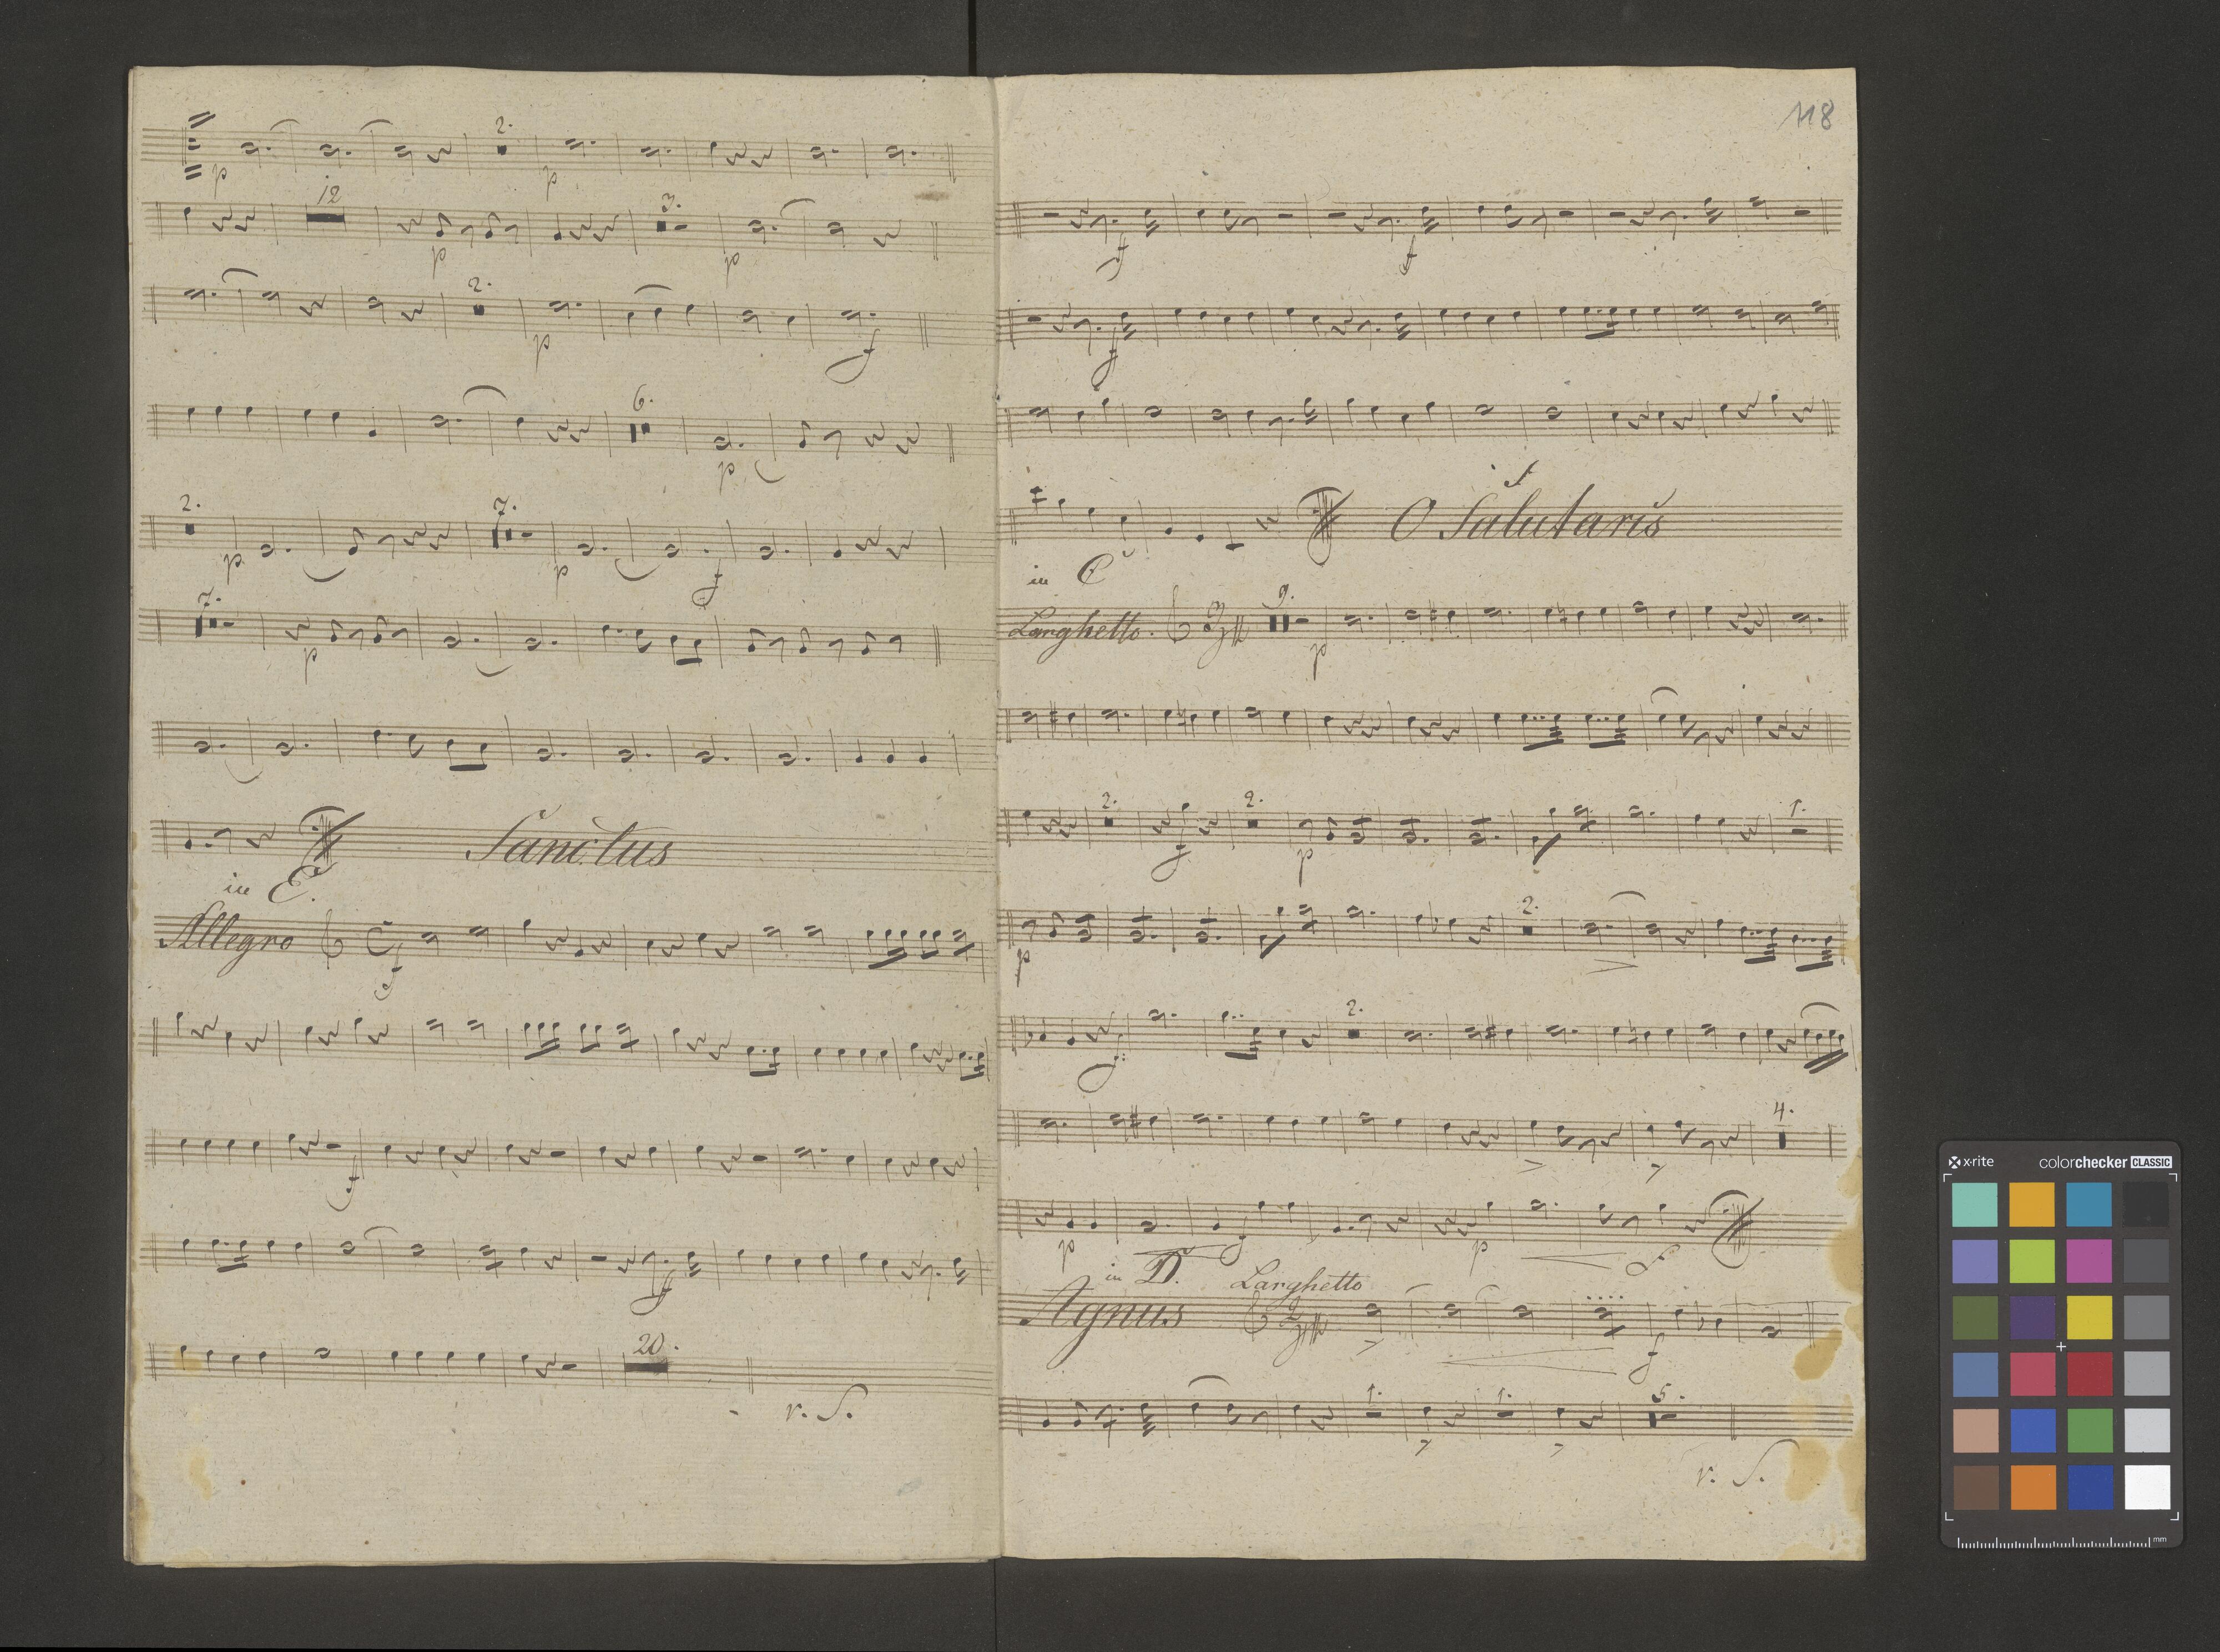 2.
p p
12 3.
p p
2.
p f
6.
p
2. 7.
p p f
7.
p
Sanctus
in C.
Allegro
f
f
ff
20.
v. S.
118
f f
f
O Salutaris
in C
Larghetto. 3/4 9.
p
2. 2. 1.
f p
2.
p
2.
f:
4.
p f p f
in D. Larghetto
Agnus 2/4
f
1. 1. 5.
v. S.
x-rite colorchecker CLASSIC
mm